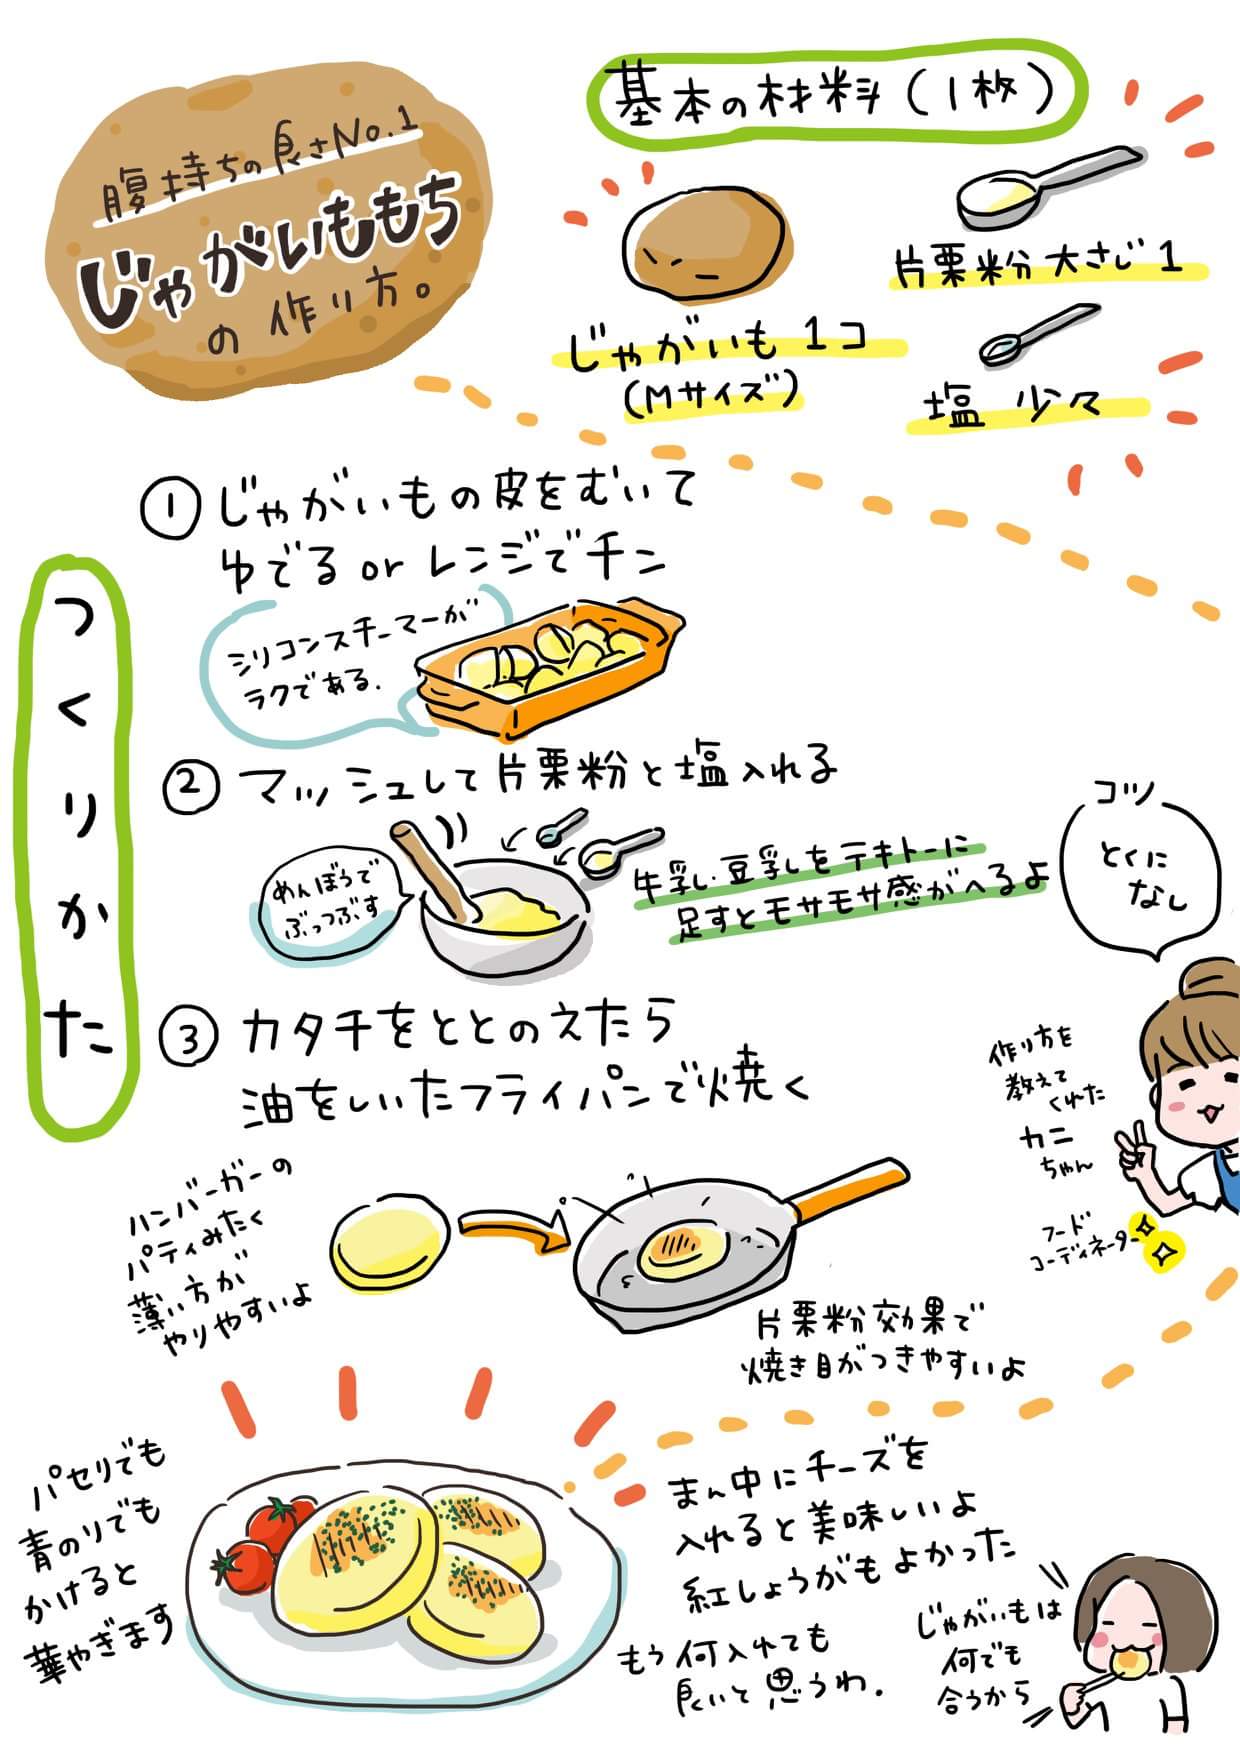 腹持ちの良さNo.1
じゃがいももち
の作り方。
基本の材料(1枚)
じゃがいも 1コ
(Mサイズ)
片栗粉 大さじ1
塩 少々
つくりかた
① じゃがいもの皮をむいて
ゆでる or レンジでチン
シリコンスチーマーが
ラクである.
② マッシュして片栗粉と塩入れる
めんぼうで
ぶっつぶす
牛乳・豆乳をテキトーに
足すとモサモサ感がへるよ
コツ
とくに
なし
③ カタチをととのえたら
油をしいたフライパンで焼く
作り方を
教えて
くれた
カニ
ちゃん
フード
コーディネーター
ハンバーガーの
パティみたく
薄い方が
やりやすいよ
片栗粉効果で
焼き目がつきやすいよ
パセリでも
青のりでも
かけると
華やぎます
まん中にチーズを
入れると美味しいよ
紅しょうがもよかった
もう何入れても
良いと思うわ.
じゃがいもは
何でも
合うから